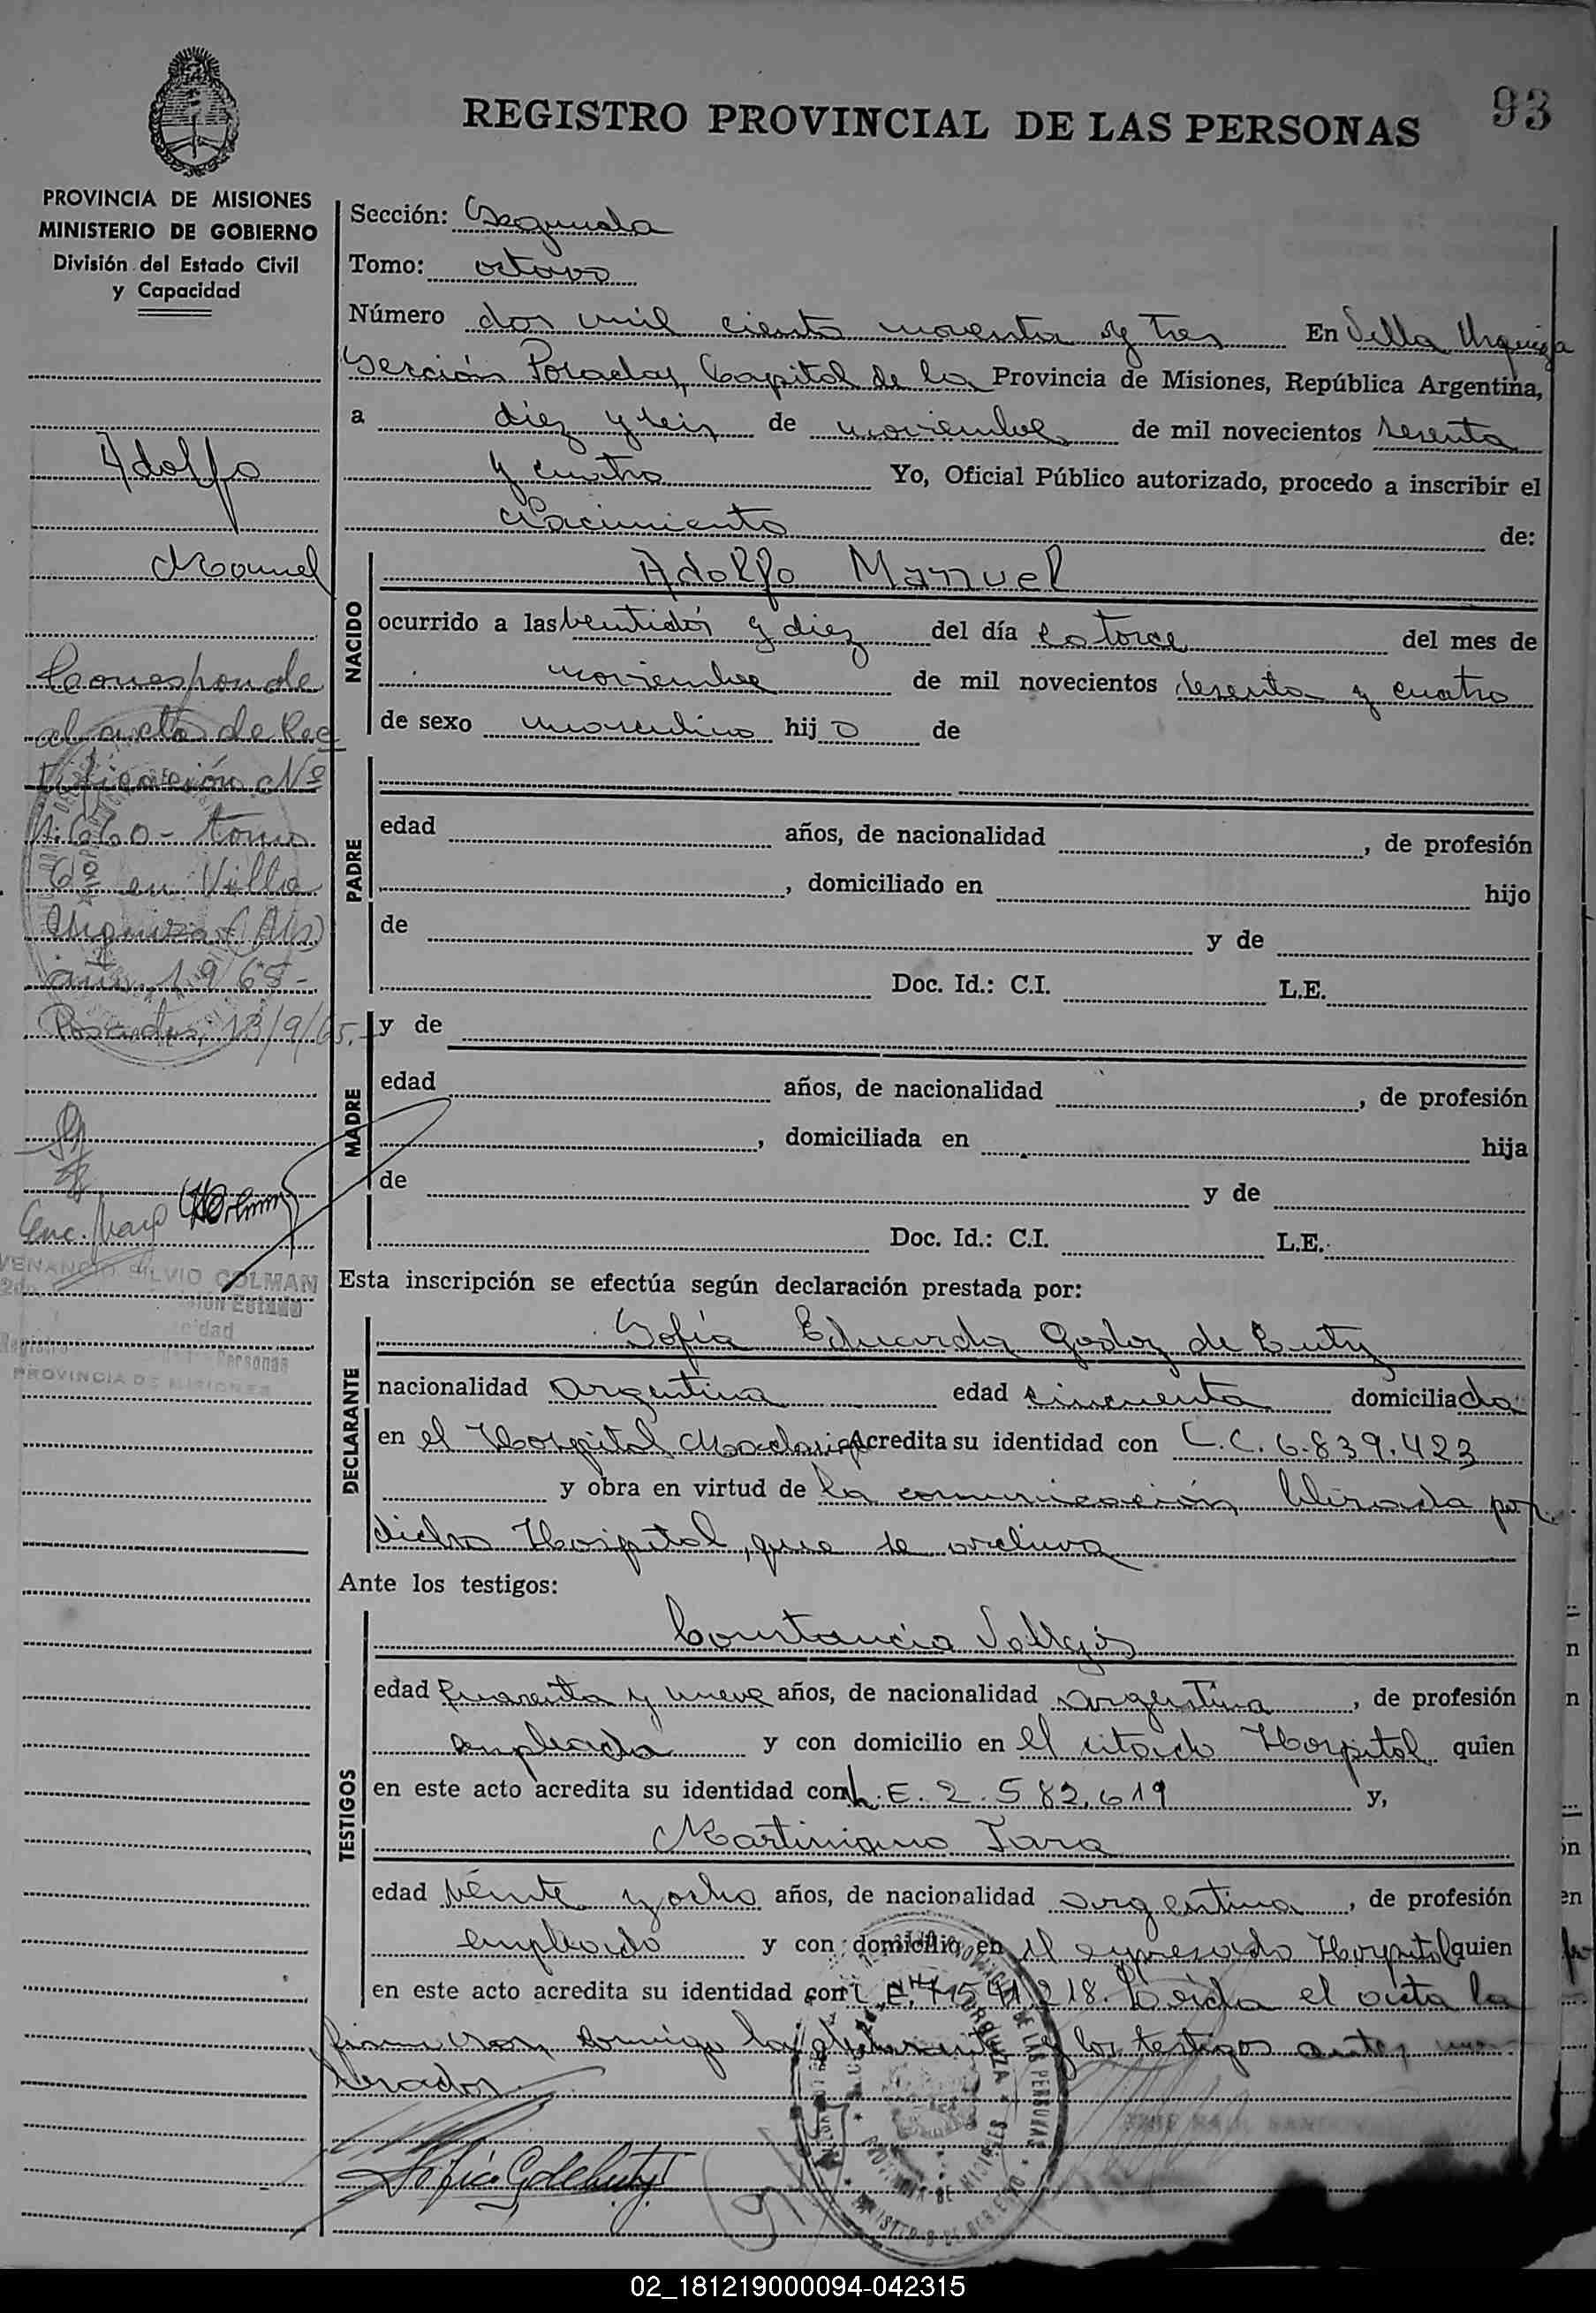 93
REGISTRO PROVINCIAL DE LAS PERSONAS
PROVINCIA DE MISIONES
MINISTERIO DE GOBIERNO
División del Estado Civil
y Capacidad
Adolfo
Manuel
Corresponde
al acta de Rec
tificación Nº
1.660 - tomo
6º en Villa
Urquiza (Mis)
año 1965 -
Posadas, 13/9/65.-
VENANCIO SILVIO COLMAN
PROVINCIA DE MISIONES
Sección: Segunda
Tomo: octavo
Número dos mil ciento noventa y tres En Villa Urquiza
Sección Posadas, Capital de la Provincia de Misiones, República Argentina,
a diez y seis de noviembre de mil novecientos sesenta
y cuatro Yo, Oficial Público autorizado, procedo a inscribir el
Nacimiento de:
NACIDO
Adolfo Manuel
ocurrido a las ventidós y diez del día catorce del mes de
noviembre de mil novecientos sesenta y cuatro
de sexo masculino hijo de
PADRE
edad años, de nacionalidad , de profesión
, domiciliado en hijo
de y de
Doc. Id.: C.I. L.E.
MADRE
y de
edad años, de nacionalidad , de profesión
, domiciliada en hija
de y de
Doc. Id.: C.I. L.E.
Esta inscripción se efectúa según declaración prestada por:
DECLARANTE
Sofía Eduarda Godoy de Cuty
nacionalidad argentina edad cincuenta domiciliada
en el Hospital Madariaga Acredita su identidad con L.C. 6.839.423
y obra en virtud de la comunicación librada por
dicho Hospital, que se archiva
Ante los testigos:
TESTIGOS
Constancia Vallejos
edad cuarenta y nueve años, de nacionalidad argentina, de profesión
empleada y con domicilio en el citado Hospital quien
en este acto acredita su identidad con L.E. 2.582.619 y,
Martiniano Jara
edad veinte y ocho años, de nacionalidad argentina, de profesión
empleado y con domicilio en el expresado Hospital quien
en este acto acredita su identidad con L.E. 7.541.218. Leída el acta la
firmaron conmigo la declarante y los testigos antes nom-
brados
02_181219000094-042315